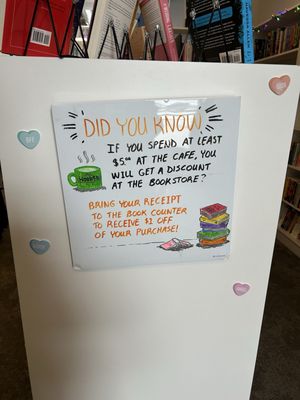 DID YOU KNOW
IF YOU SPEND AT LEAST
$5.00 AT THE CAFE, YOU
WILL GET A DISCOUNT
AT THE BOOKSTORE?
BRING YOUR RECEIPT
TO THE BOOK COUNTER
TO RECEIVE $1 OFF
OF YOUR PURCHASE!